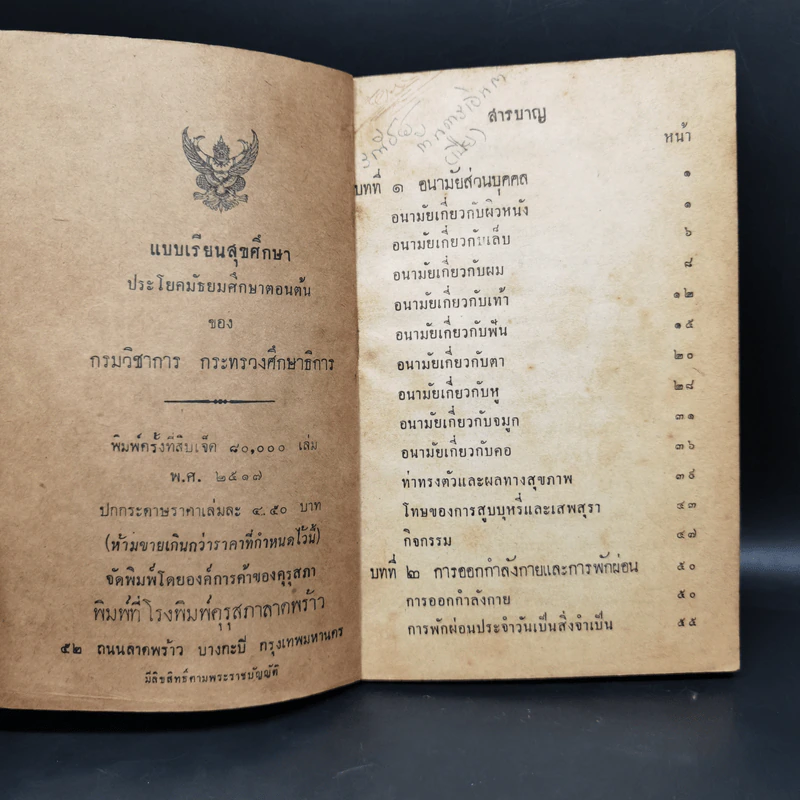 แบบเรียนสุขศึกษา
ประโยคมัธยมศึกษาตอนต้น
ของ
กรมวิชาการ กระทรวงศึกษาธิการ
พิมพ์ครั้งที่สิบเจ็ด ๘๐,๐๐๐ เล่ม
พ.ศ. ๒๕๑๗
ปกกระดาษราคาเล่มละ ๔.๕๐ บาท
(ห้ามขายเกินกว่าราคาที่กำหนดไว้นี้)
จัดพิมพ์โดยองค์การค้าของคุรุสภา
พิมพ์ที่โรงพิมพ์คุรุสภาลาดพร้าว
๕๒ ถนนลาดพร้าว บางกะปิ กรุงเทพมหานคร
มีลิขสิทธิ์ตามพระราชบัญญัติ
สารบาญ
หน้า
บทที่ ๑ อนามัยส่วนบุคคล ๑
อนามัยเกี่ยวกับผิวหนัง ๑
อนามัยเกี่ยวกับเล็บ ๖
อนามัยเกี่ยวกับผม ๘
อนามัยเกี่ยวกับเท้า ๑๒
อนามัยเกี่ยวกับฟัน ๑๕
อนามัยเกี่ยวกับตา ๒๐
อนามัยเกี่ยวกับหู ๒๘
อนามัยเกี่ยวกับจมูก ๓๑
อนามัยเกี่ยวกับคอ ๓๖
ท่าทรงตัวและผลทางสุขภาพ ๓๙
โทษของการสูบบุหรี่และเสพสุรา ๔๓
กิจกรรม ๔๗
บทที่ ๒ การออกกำลังกายและการพักผ่อน ๕๐
การออกกำลังกาย ๕๐
การพักผ่อนประจำวันเป็นสิ่งจำเป็น ๕๕